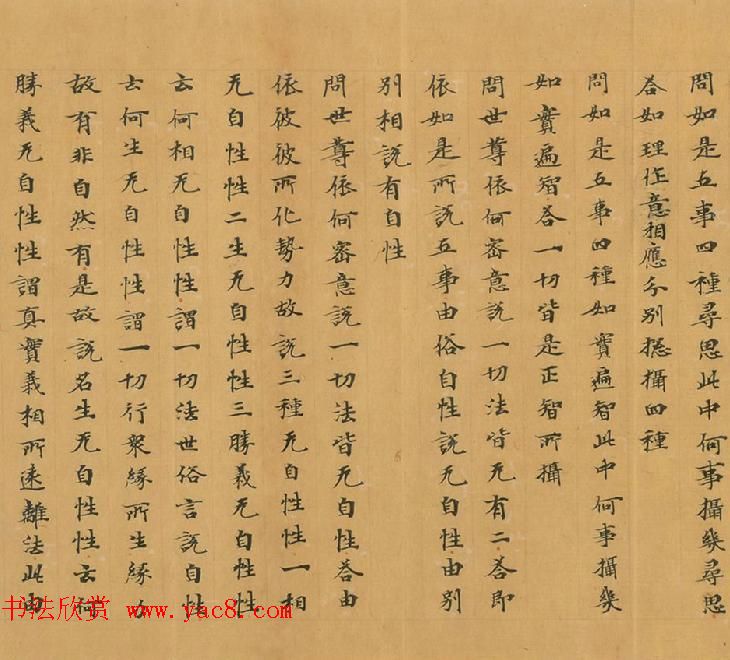 問如是五事四種尋思此中何事攝幾尋思
答如理作意相應分別揔攝四種
問如是五事四種如實遍智此中何事攝幾
如實遍智答一切皆是正智所攝
問世尊依何密意說一切法皆无有二答即
依如是所說五事由俗自性說无自性由別
別相說有自性
問世尊依何密意說一切法皆无自性答由
依彼彼所化勢力故說三種无自性性一相
无自性性二生无自性性三勝義无自性性
云何相无自性性謂一切法世俗言說自性
云何生无自性性謂一切行衆緣所生緣力
故有非自然有是故說名生无自性性云何
勝義无自性性謂真實義相所遠離法此由
书法欣赏 www.yac8.com